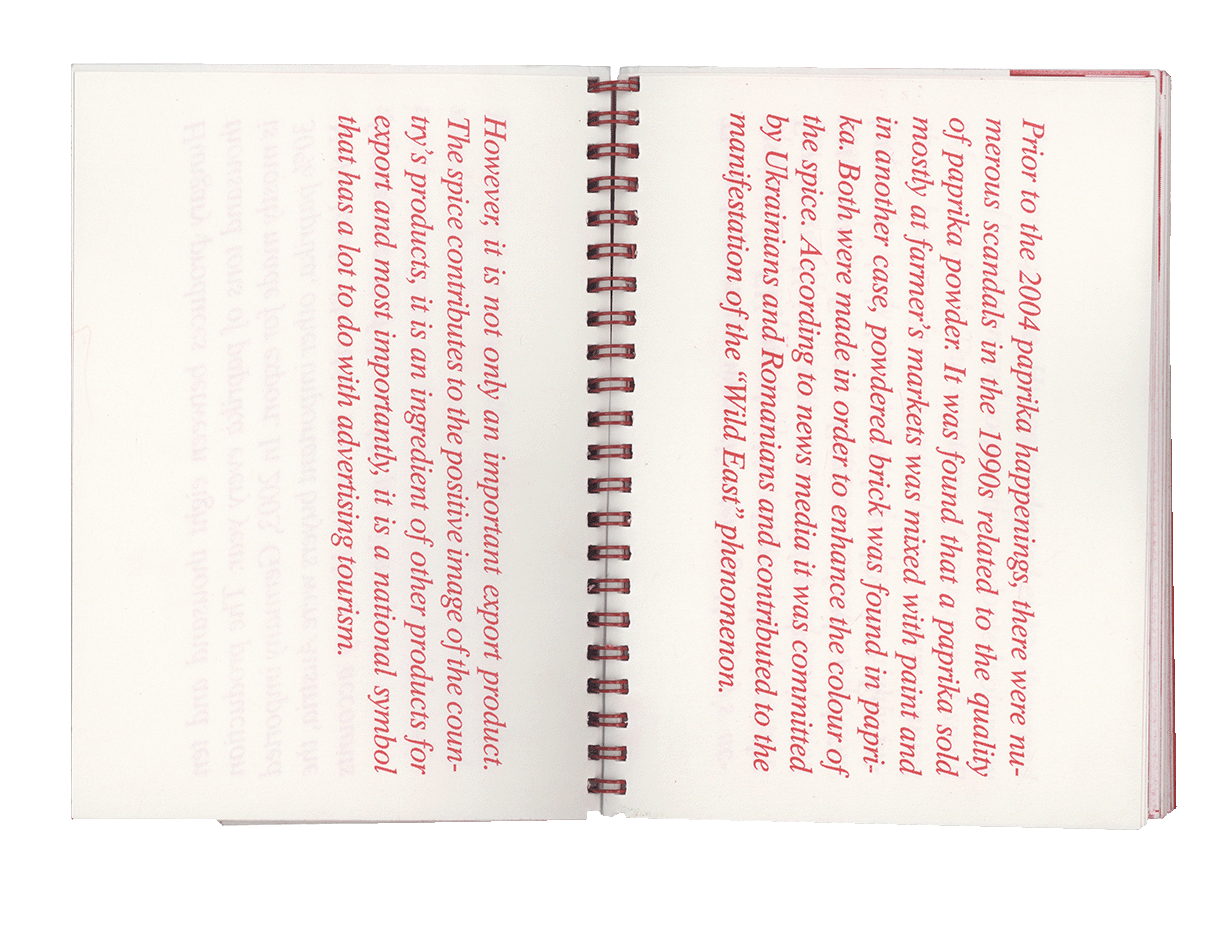 Prior to the 2004 paprika happenings, there were nu-
merous scandals in the 1990s related to the quality
of paprika powder. It was found that a paprika sold
mostly at farmer's markets was mixed with paint and
in another case, powdered brick was found in papri-
ka. Both were made in order to enhance the colour of
the spice. According to news media it was committed
by Ukrainians and Romanians and contributed to the
manifestation of the “Wild East” phenomenon.
However, it is not only an important export product.
The spice contributes to the positive image of the coun-
try's products, it is an ingredient of other products for
export and most importantly, it is a national symbol
that has a lot to do with advertising tourism.